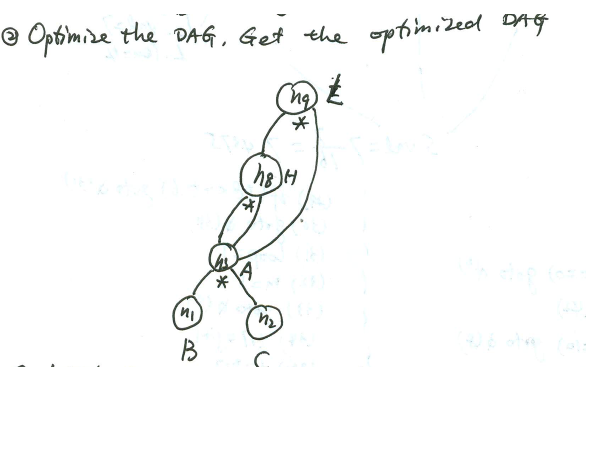 ② Optimize the DAG. Get the optimized DAG
n9
*
n8 H
*
n3 A
*
n1 n2
B C